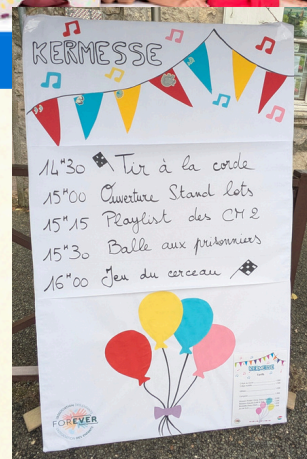 KERMESSE
14H30 Tir à la corde
15H00 Ouverture Stand lots
15H15 Playlist des CM2
15H30 Balle aux prisonniers
16H00 Jeu du cerceau
FOREVER